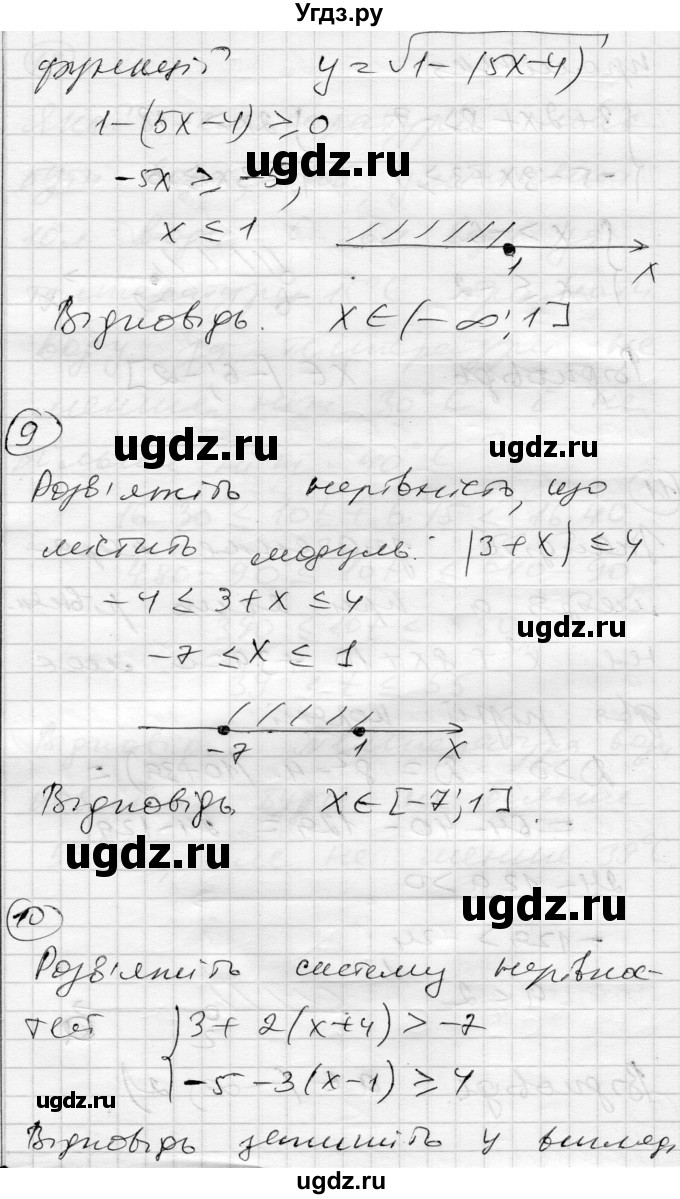 Угдз.ру
функції y = √(1-(5x-4))
1-(5x-4) ≥ 0
ugdz.ru
-5x ≥ -5,
x ≤ 1
1 x
Відповідь. x ∈ (-∞; 1]
9
ugdz.ru
ugdz.ru
Розв'яжіть нерівність, що
містить модуль: |3+x| ≤ 4
-4 ≤ 3+x ≤ 4
ugdz.ru
-7 ≤ x ≤ 1
-7 1 x
Відповідь x ∈ [-7; 1].
ugdz.ru
ugdz.ru
10
Розв'яжіть систему нерівнос-
тей { 3+2(x+4) > -7
-5-3(x-1) ≥ 4
ugdz.ru
Відповідь запишіть у вигляді
ugdz.ru